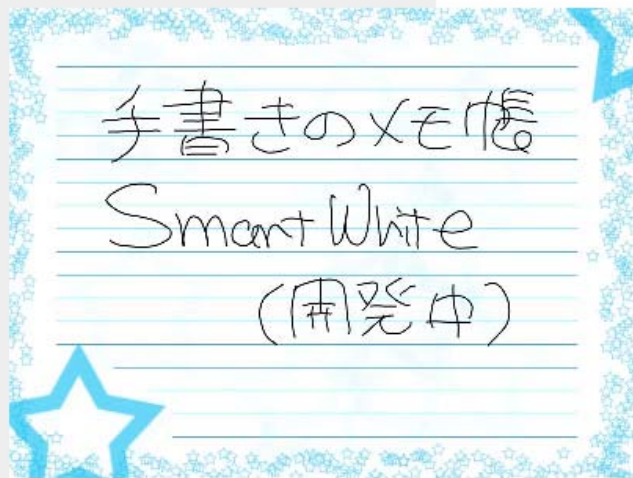 手書きのメモ帳
SmartWhite
(開発中)